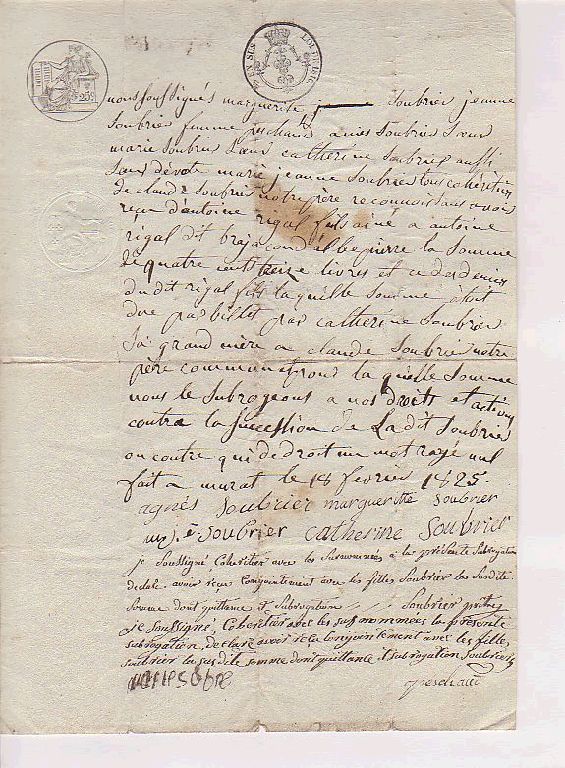 25c
EN SUS
LOI DE 1816
nous soussignés marguerite Soubrier jeanne
Soubrier femme peschaud agnes Soubrier Sœur
marie Soubrier Sœur catherine Soubrier aussi
Sœur dévote marie jeanne Soubrier tous cohéritiers
de claude Soubrier notre père reconnoissons avoir
reçu d'antoine rigal fils ainé a antoine
rigal dit braja cond d'albepierre la Somme
de quatre cents treize livres et ce des deniers
du dit rigal fils la quelle Somme étoit
due par billet par catherine Soubrier
Sa grand mère a claude Soubrier notre
père commun pour la quelle Somme
nous le Subrogeons a nos droits et actions
contra la Succession de La dit Soubrier
ou contre qui de droit un mot rayé nul
fait a murat le 18 fevrier 1825
agnés Soubrier marguerite Soubrier
m j e Soubrier catherine Soubrier
je Soussigné Coheritier avec les Susnommées à la présente Subrogation
declare avoir reçu conjointement avec les filles Soubrier la Susdite
Somme dont quittance et Subrogation Soubrier
je soussigné, Coheritier avec les susnommées la presente
subrogation, declare avoir reçu conjointement avec les filles
soubrier la susdite somme dont quittance et subrogation soubrier
marie sobre
peschaud